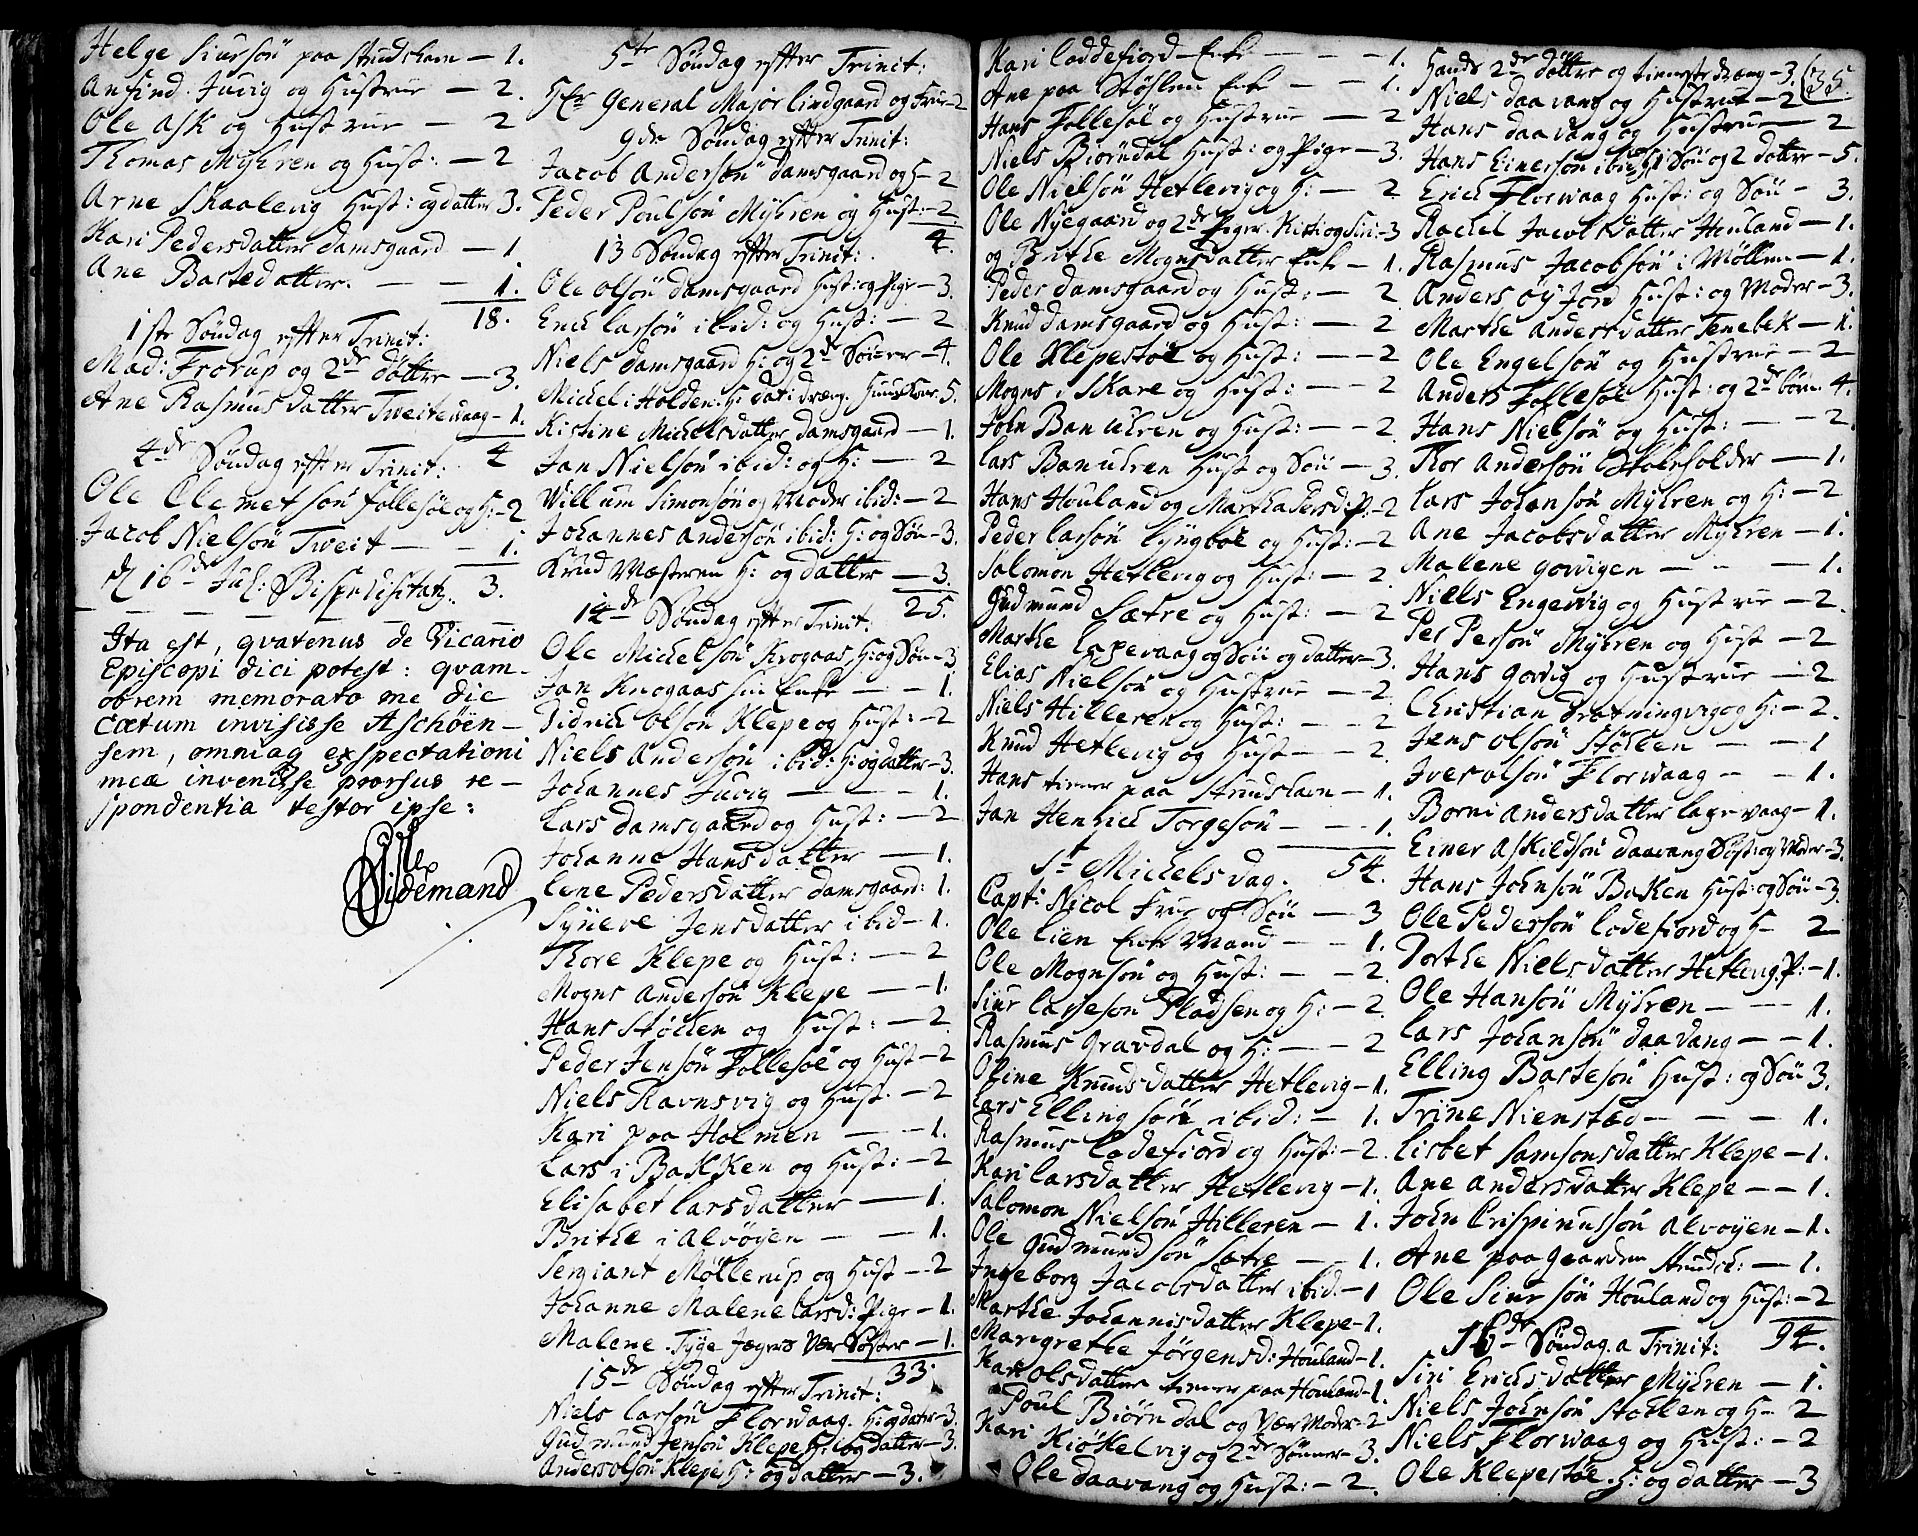 Helge Siursøn paa Strudshavn — 1.
Anfind Juvig og Hustrue — 2.
Ole Ask og Hustrue — 2
Thomas Myhren og Hust: — 2
Arne Skaalevig Hust: og datter 3.
Kari Pedersdatter damsgaard — 1.
Ane Bartedatter. — — 1.
18.
1ste Søndag efter Trinit:
Mad: Frorup og 2de døttre — 3.
Ane Rasmusdatter Tweitevaag — 1.
4
4de Søndag efter Trinit:
Ole Clemetsøn follesøe og H: — 2
Jacob Nielsøn Tweit — — 1.
3.
d 16de Jul: Bispevisitatz.
Ita est, qvatenus de Vicario
Episcopi dici potest: qvam-
obrem memorato me die
cætum invisisse Aschöen-
sem, omniaq exspectationi
meæ invenisse prorsus re-
spondentia testor ipse:
Tidemand
5te Søndag efter Trinit:
Hr General Major Lindgaard og Frue — 2
9de Søndag efter Trinit:
Jacob Andersøn damsgaard og H — 2
Peder Poulsøn Myhren og Hust: — 2
4.
13 Søndag efter Trinit:
Ole Olsøn damsgaard Hust: og Pige — 3.
Erich Larsøn ibid: og Hust: — 2
Niels damsgaard H: og 2de Sønner — 4.
Michel i Holden: H: dat: dreng. 5.
Kistine Michelsdatter damsgaard — 1.
Jan Nielsøn ibid: og H: — 2
Willum Simonsøn og Moder ibid: — 2
Johannes Andersøn ibid: H: og Søn — 3.
Knud Mæsteren H: og datter — 3.
25.
14de Søndag efter Trinit:
Ole Michelsøn Krogaas H: og Søn — 3
Jan Knogaas sin Enke — — 1.
Didrich Olsøn Klepe og Hust: — 2
Niels Andersøn ibid: H: og datter — 3.
Johannes Juvig — — — 1.
Lars damsgaard og Hust: — 2
Johanne Hansdatter — 1.
Lene Pedersdatter damsgaard: 1.
Synneve Jensdatter ibid — 1.
Thore Klepe og Hust: — 2
Mogns Andersøn Klepe — 1.
Hans Støhlen og Hust: — 2.
Peder Jensøn Follesøe og Hust — 2
Niels Ravnsvig og Hust. — 2
Kari paa Holmen — — 1.
Lars i Bakken og Hust: — 2
Elisabet Larsdatter — 1.
Brithe i Alvøyen — — 1.
Sergiant Møllerup og Hust — 2
Johanne Malene Larsd: Pige — 1.
Malene Tyge Jægers Vær Søster — 1.
33.
15de Søndag efter Trinit:
Niels Larsøn Florwaag. H: og dater — 3.
Gudmund Jensøn Klepe H: og datter — 3.
Anders Olsøn Klepe H: og datter — 3.
Kari Loddefiord Enke — — — 1.
Ane paa Støhlen Enke — — 1.
Hans Follesøe og Hustrue — 2
Niels Biørndal Hust: og Pige — 3.
Ole Nielsøn Hetlevig og H: — 2
Ole Nyegaard og 2de Piger Kisti og Siri — 3
og Brithe Mognsdatter Enke — 1.
Peder damsgaard og Hust: — 2
Knud damsgaard og Hust: — 2
Ole Klepestøe og Hust: — 2
Mogns i Skare og Hust: — 2
John Banuhren og Hust: — 2
Lars Banuhren Hust og Søn — 3
Hans Houland og Martha Persd: P: — 2
Peder Larsøn Lyngboe og Hust: — 2
Salomon Hetlevig og Hust: — 2
Gudmund Sætre og Hust: — 2
Marthe Lagevaag og Søn og datter — 3.
Elias Nielsøn og Hustrue — 2
Niels Hilleren og Hust: — 2
Knud Hetlevig og Hust — 2.
Hans tiener paa Strudshavn — 1.
Jan Henrich Torgesøn — — 1.
54.
St Michelsdag.
Capt: Nicol Frue og Søn — 3
Ole Lien Enke Mand — 1.
Ole Mognsøn og Hust: — 2.
Siur Larsesøn Pladsen og H: — 2.
Rasmus Gravdal og H: — 2
Oline Knudsdatter Hetlevig — 1.
Lars Ellingsøn ibid: — 1.
Rasmus Lodefiord og Hust: — 2.
Kari Larsdatter Hetlevig — 1.
Salomon Nielsøn Hilleren — 1.
Ole Gudmundsøn Sætre — 1.
Ingeborg Jacobsdatter ibid. — 1
Marthe Johannisdatter Klepe — 1.
Margrethe Jørgensd: Houland — 1.
Kari Olsdatter tiener paa Houland — 1.
Poul Biørndal og Vær Moder — 2
Kari Kiøkelvig og 2de Sønner — 3.
Ole daavang og Hust: — 2.
35.
Hands 2de døttre og tieneste dreng — 3.
Niels daavang og Hustrue — 2
Hans daavang og Hustrue — 2
Hans Einersøn ibid: H: Søn og 2 døttre — 5.
Erich Florwaag Hust: og Søn — 3.
Rachel Jacobsdatter Houland — 1.
Rasmus Jacobsøn i Møllen — 1.
Anders Øyjord Hust: og Moder — 3.
Marthe Andersdatter Tenebek — 1.
Ole Engelsøn og Hustrue — 2
Anders Follesøe Hust: og 2de børn. 4.
Hans Nielsøn og Hust: — 2.
Thor Andersøn Skoleholder — 1.
Lars Johansøn Myhren og H: — 2
Ane Jacobsdatter Myhren — 1.
Malene Govigen — — — 1.
Niels Engevig og Hustrue — 2.
Per Persøn Myhren og Hust — 2
Hans Govig og Hustrue — 2
Christian Drotningvig og H: — 2.
Jens Olsøn Støhlen — — 1
Iver Olsøn Florwaag — — 1.
Borni Andersdatter Lagevaag — 1.
Einer Askildsøn daavang Søst: og Moder — 3.
Hans Johnsøn Bakken Hust: og Søn — 3.
Ole Pedersøn Lodefiord og H — 2
Dorthe Nielsdatter Hetlevig P: — 1.
Ole Hansøn Myhren — — 1.
Lars Johansøn daavang — — 1.
Elling Bartesøn Hust: og Søn 3.
Trine Nienstæd — — — 1.
Lisbet Samsonsdatter Klepe — 1.
Ane Andersdatter Klepe — — 1.
John Crispinussøn Alvøyen — 1.
Ane paa Gaarden Strudsh: — 1.
Ole Siursøn Houland og Hust: — 2
94.
16de Søndag a Trinit:
Siri Erichsdatter Myhren — 1.
Niels Johnsøn Støhlen og H — 2
Niels Florwaag og Hust: — 2
Ole Klepestøe. H: og datter — 3